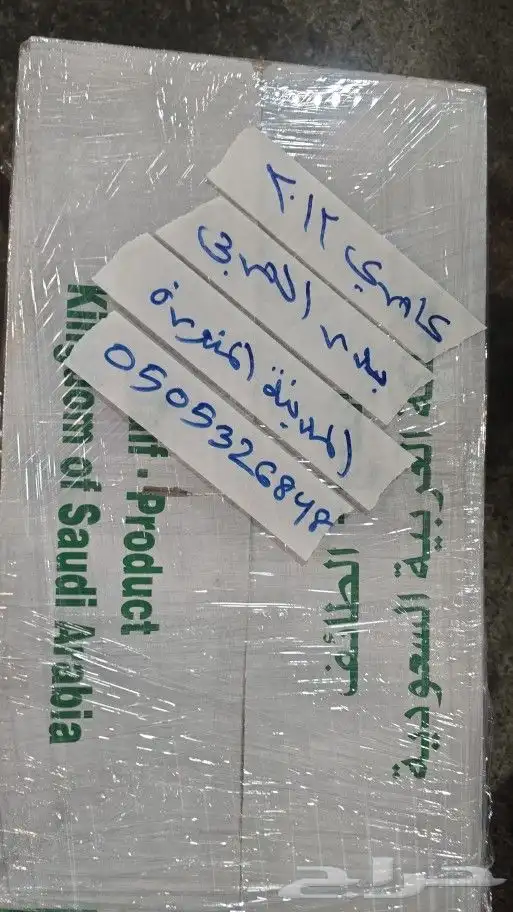 كامري ٢٠١٢
بدر الحربي
المدينة المنورة
0505326848
المملكة العربية السعودية
الطائف
Taif - Product
Kingdom of Saudi Arabia
حراج